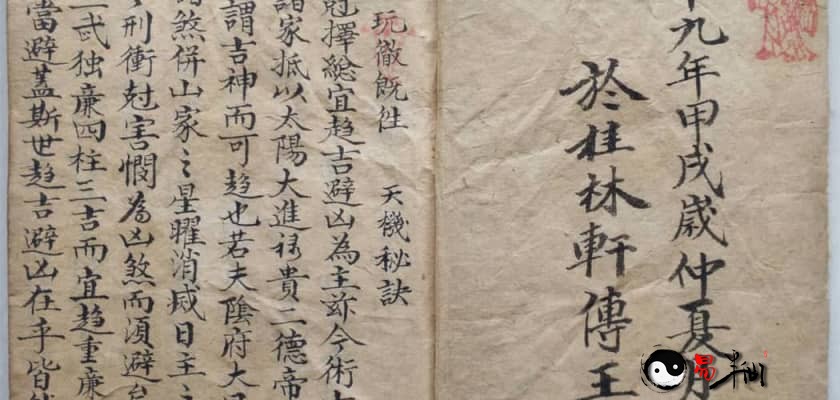 十九年甲戌歲仲夏月
於桂林軒傳王
玩徹旣往 天機秘訣
冠擇總宜趋吉避凶為主茲今術
諸家抵以太陽大進禄貴二德帝
謂吉神而可趋也若夫陰府大
煞併山家之星曜消威日主之
刑衝尅害憫為凶煞而須避
二武独亷四柱三吉而宜趋重亷
當避蓋斯世趋吉避凶在乎皆
易半仙